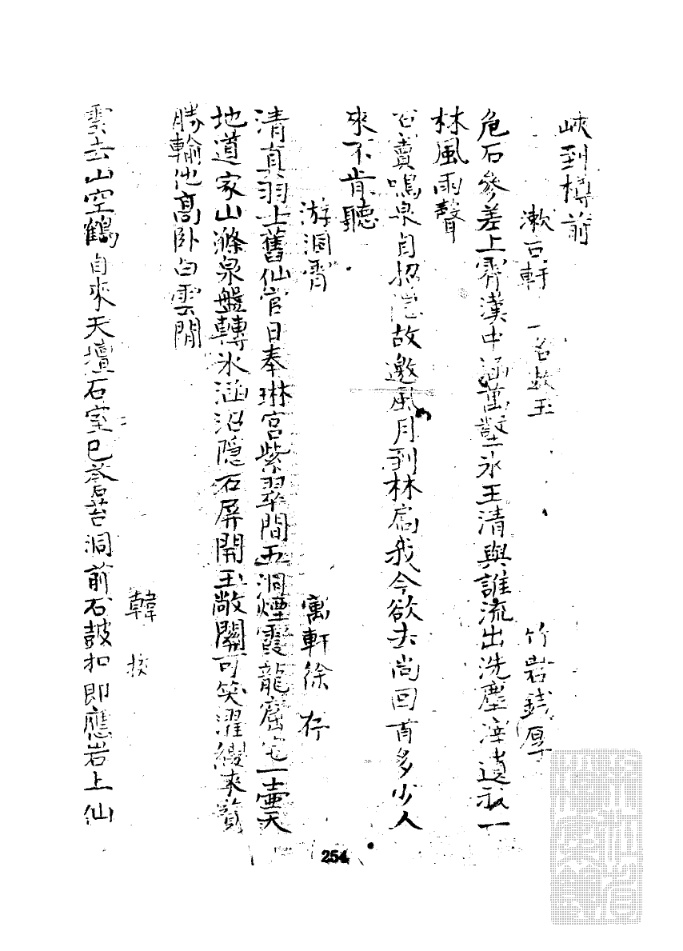 峽到樽前
漱石軒 一名漱玉 竹岩錢厚
危石參差上霄漢中涵萬壑氷玉清與誰流出洗塵滓遺我一
林風雨聲
石竇鳴泉自招 故邀風月到林扃我今欲去尚回首多少人
來不肯聽
游洞霄 寓軒徐存
清真羽上舊仙官日奉琳宮紫翠間五洞煙霞龍窟宅一壺天
地道家山滌泉盤轉氷涵沼隐石屏開玉敞關可笑濯纓來
勝輸他高卧白雲閒
韓
雲去山空鶴自來天壇石室已蒼苔洞前石鼓扣即應岩上仙
254